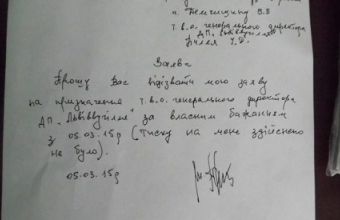 п. Демчишину В.В
т.в.о. генерального директора
ДП „Львіввугілля"
Заява
Прошу Вас відізвати мою заяву
на призначення т.в.о. генерального директора
ДП „Львіввугілля" за власним бажанням
з 05.03.15р (тиску на мене здійснено
не було).
05.03.15р